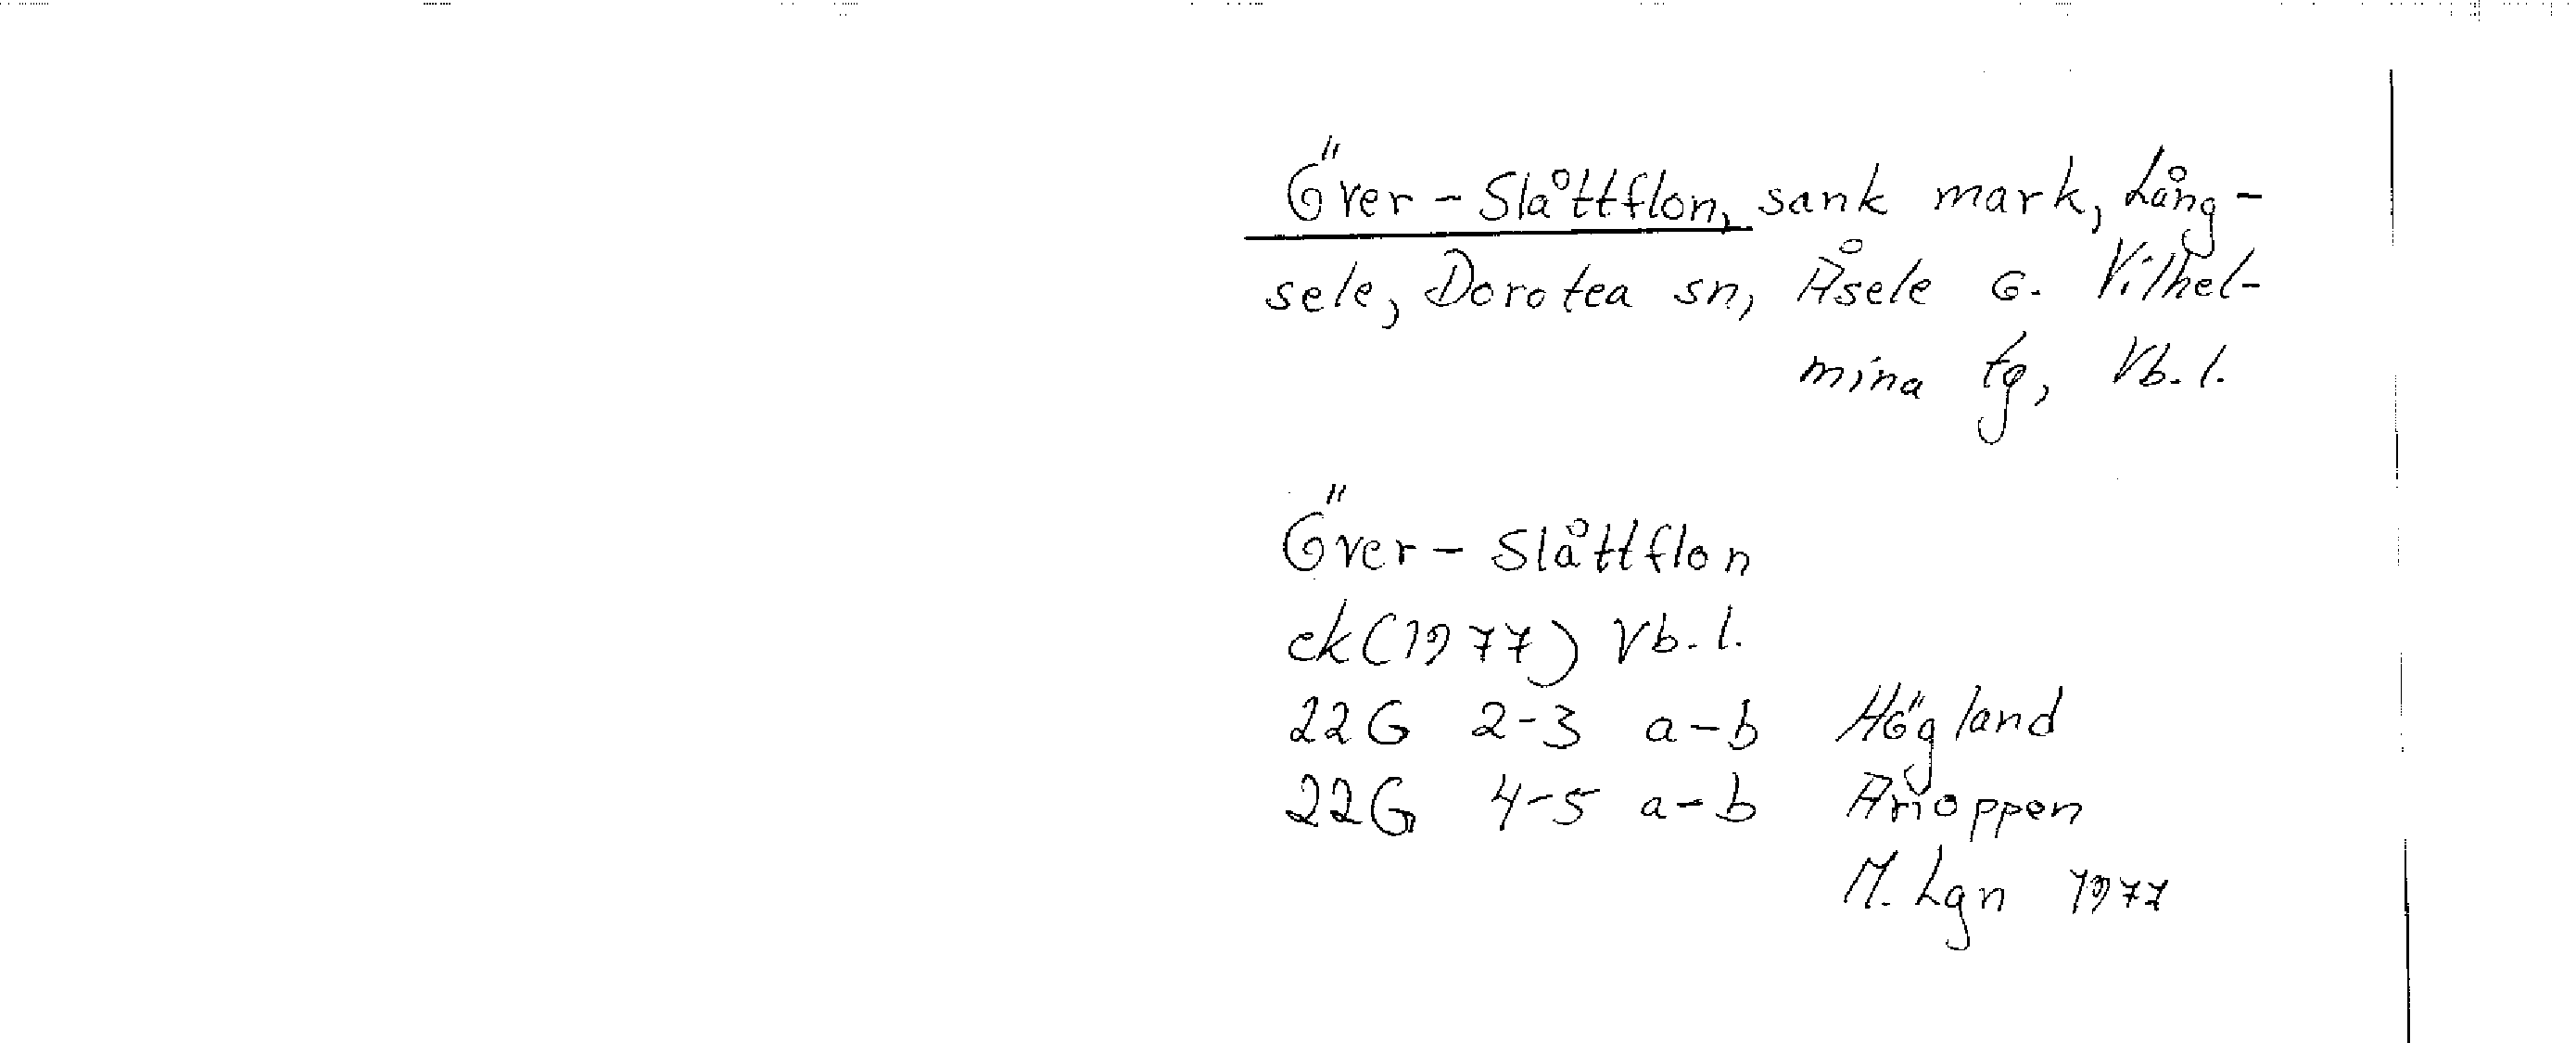 Över-Slåttflon, sank mark, Lång-
sele, Dorotea sn, Åsele o. Vilhel-
mina tg, Vb. l.
Över-Slåttflon
ek (1977) Vb. l.
22G 2-3 a-b Högland
22G 4-5 a-b
M. Lgn 1977